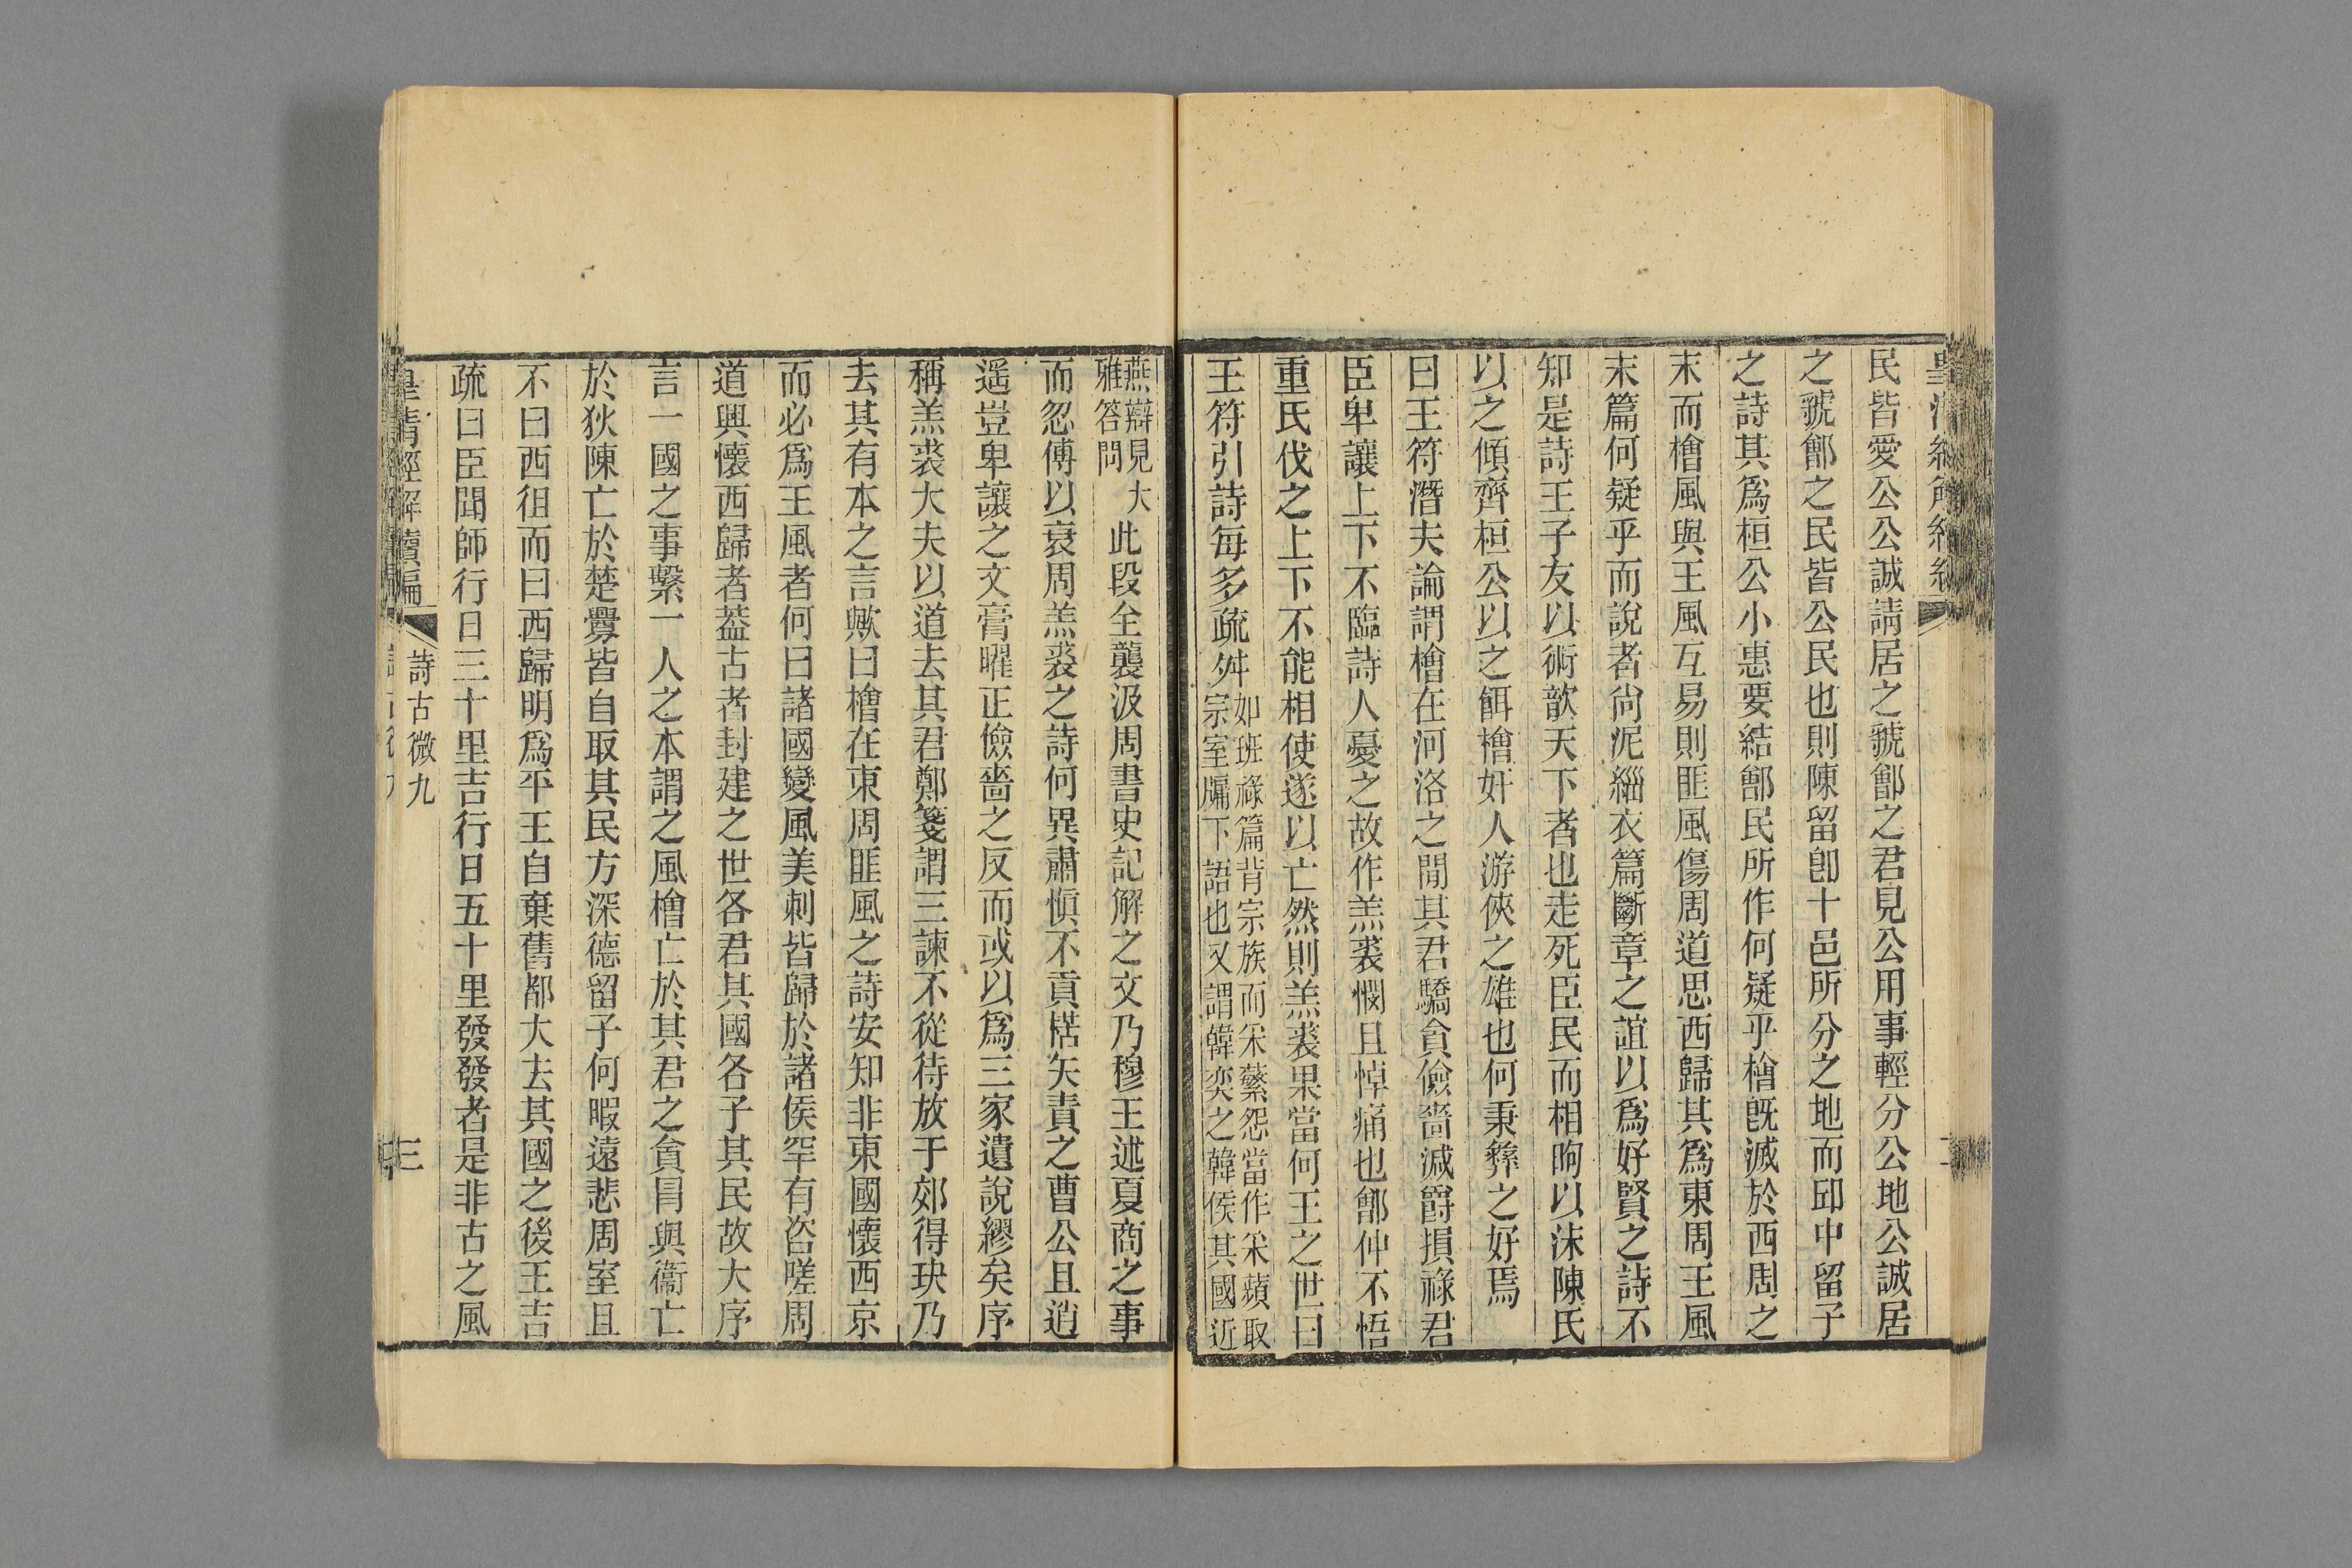 民皆愛公公誠請居之虢鄶之君見公用事輕分公地公誠居
之虢鄶之民皆公民也則陳留卽十邑所分之地而邱中留子
之詩其爲桓公小惠要結鄶民所作何疑乎檜旣滅於西周之
末而檜風與王風互易則匪風傷周道思西歸其爲東周王風
末篇何疑乎而說者尙泥緇衣篇斷章之誼以爲好賢之詩不
知是詩王子友以術歆天下者也走死臣民而相呴以沫陳氏
以之傾齊桓公以之餌檜奸人游俠之雄也何秉彝之好焉
曰王符潛夫論謂檜在河洛之閒其君驕貪儉嗇減爵損祿君
臣卑讓上下不臨詩人憂之故作羔裘憫且悼痛也鄶仲不悟
重氏伐之上下不能相使遂以亡然則羔裘果當何王之世曰
王符引詩每多疏舛如班祿篇背宗族而采蘩怨當作采蘋取
宗室牖下語也又謂韓奕之韓侯其國近
燕辯見大
雅答問
此段全襲汲周書史記解之文乃穆王述夏商之事
而忽傅以衰周羔裘之詩何異肅愼不貢楛矢責之曹公且逍
遥豈卑讓之文膏曜正儉嗇之反而或以爲三家遺說繆矣序
稱羔裘大夫以道去其君鄭箋謂三諫不從待放于郊得玦乃
去其有本之言歟曰檜在東周匪風之詩安知非東國懷西京
而必爲王風者何曰諸國變風美刺皆歸於諸侯罕有咨嗟周
道興懷西歸者蓋古者封建之世各君其國各子其民故大序
言一國之事繫一人之本謂之風檜亡於其君之貪冒與衞亡
於狄陳亡於楚釁皆自取其民方深德留子何暇遠悲周室且
不曰西徂而曰西歸明爲平王自棄舊都大去其國之後王吉
疏曰臣聞師行日三十里吉行日五十里發發者是非古之風
皇清經解續編
詩古微九
三